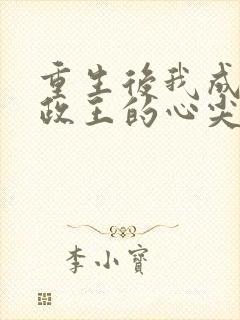 重生後我成
政王的心尖
李小寶